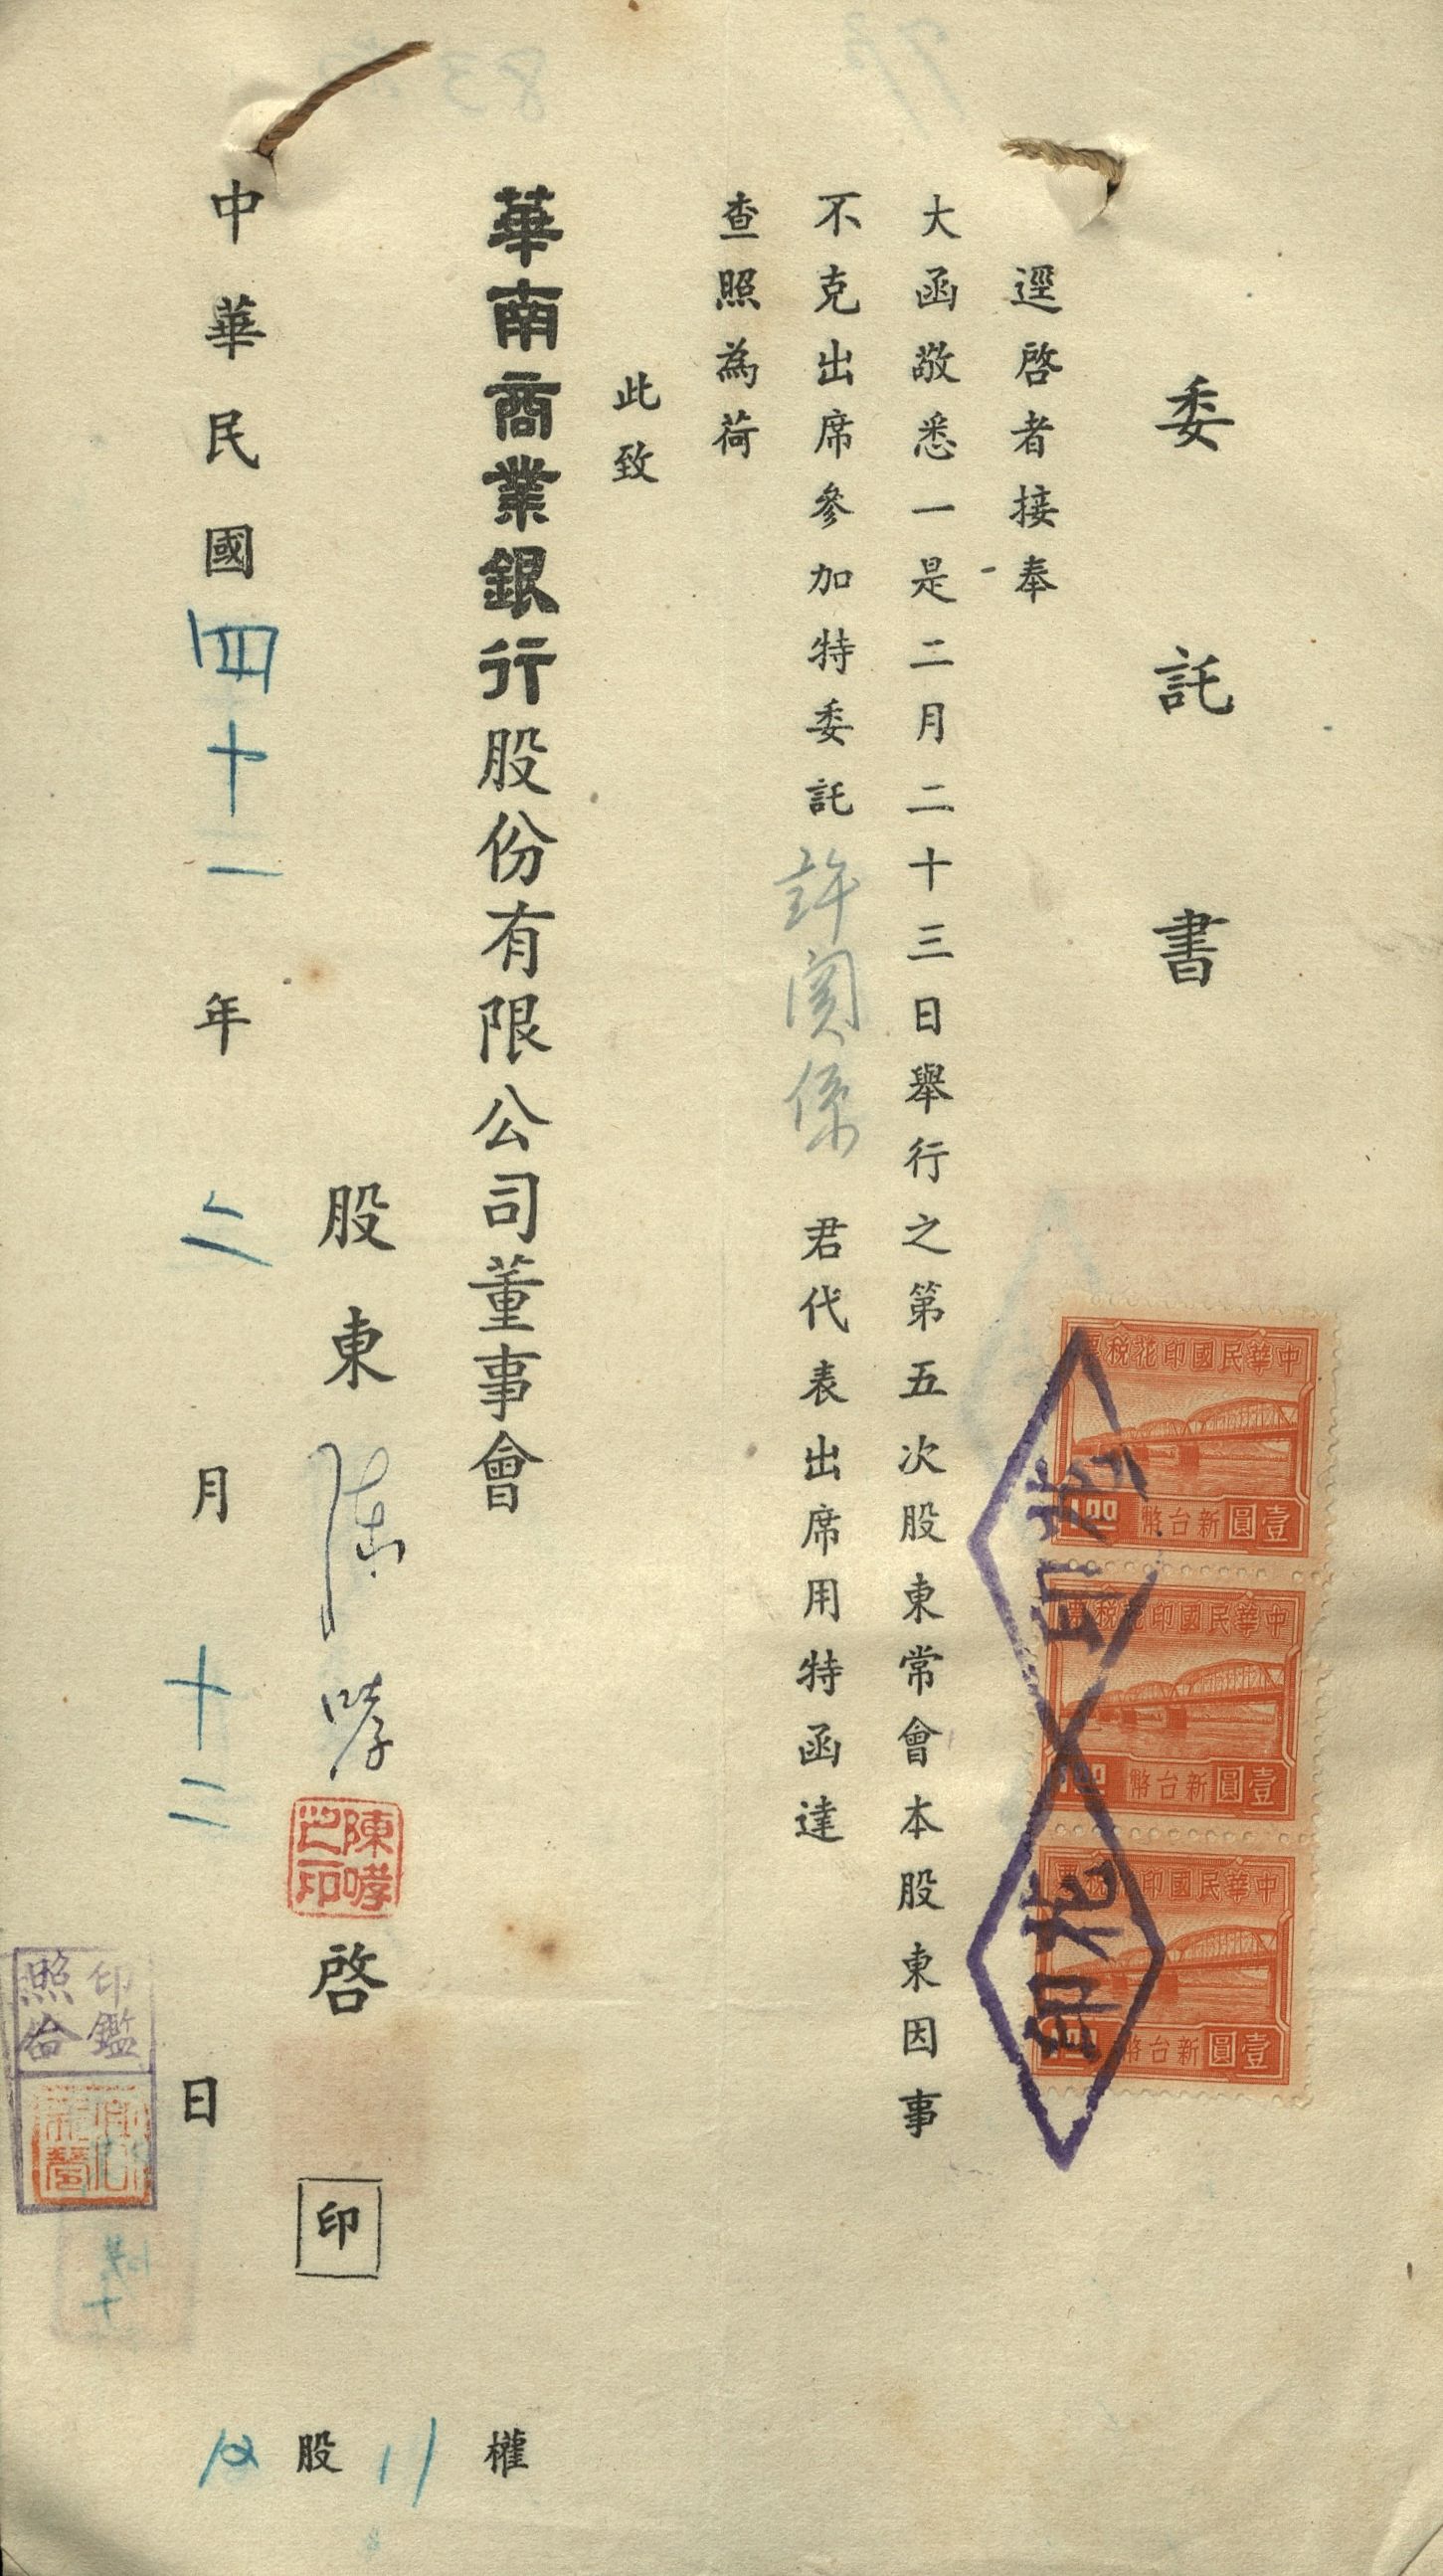 委託書
逕啓者接奉
大函敬悉一是二月二十三日舉行之第五次股東常會本股東因事
不克出席參加特委託許関係君代表出席用特函達
查照為荷
此致
華南商業銀行股份有限公司董事會
股東陳哮啓
陳哮
之印
印
中華民國四十一年二月十二日
股11權
印鑑
照合
中華民國印花稅票
1.00
新台幣
壹圓
中華民國印花稅票
1.00
新台幣
壹圓
中華民國印花稅票
1.00
新台幣
壹圓
印花
印花